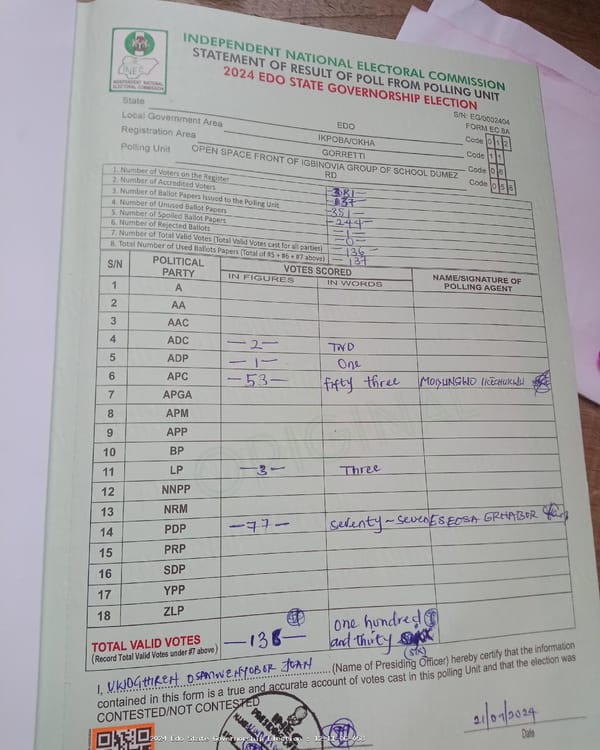 INDEPENDENT NATIONAL ELECTORAL COMMISSION
STATEMENT OF RESULT OF POLL FROM POLLING UNIT
2024 EDO STATE GOVERNORSHIP ELECTION
INEC
INDEPENDENT NATIONAL ELECTORAL COMMISSION
S/N: EG/0002404
FORM EC 8A
State EDO Code 0 1 2
Local Government Area IKPOBA/OKHA Code 1 1
Registration Area GORRETTI Code 0 8
Polling Unit OPEN SPACE FRONT OF IGBINOVIA GROUP OF SCHOOL DUMEZ RD Code 0 5 8
1. Number of Voters on the Register 381
2. Number of Accredited Voters 137
3. Number of Ballot Papers Issued to the Polling Unit 381
4. Number of Unused Ballot Papers 244
5. Number of Spoiled Ballot Papers 1
6. Number of Rejected Ballots 0
7. Number of Total Valid Votes (Total Valid Votes cast for all parties) 136
8. Total Number of Used Ballots Papers (Total of #5 + #6 + #7 above) 137
S/N POLITICAL PARTY VOTES SCORED NAME/SIGNATURE OF POLLING AGENT
IN FIGURES IN WORDS
1 A
2 AA
3 AAC
4 ADC -2- TWO
5 ADP -1- One
6 APC -53- fifty three IKECHUKWU
7 APGA
8 APM
9 APP
10 BP
11 LP -3- Three
12 NNPP
13 NRM
14 PDP -77- Seventy-Seven ESEOSA
15 PRP
16 SDP
17 YPP
18 ZLP
ORIGINAL
TOTAL VALID VOTES -136- one hundred and thirty (SIX)
(Record Total Valid Votes under #7 above)
I, (Name of Presiding Officer) hereby certify that the information
contained in this form is a true and accurate account of votes cast in this polling Unit and that the election was
CONTESTED/NOT CONTESTED
21/09/2024
Date
2024 Edo State Governorship Election